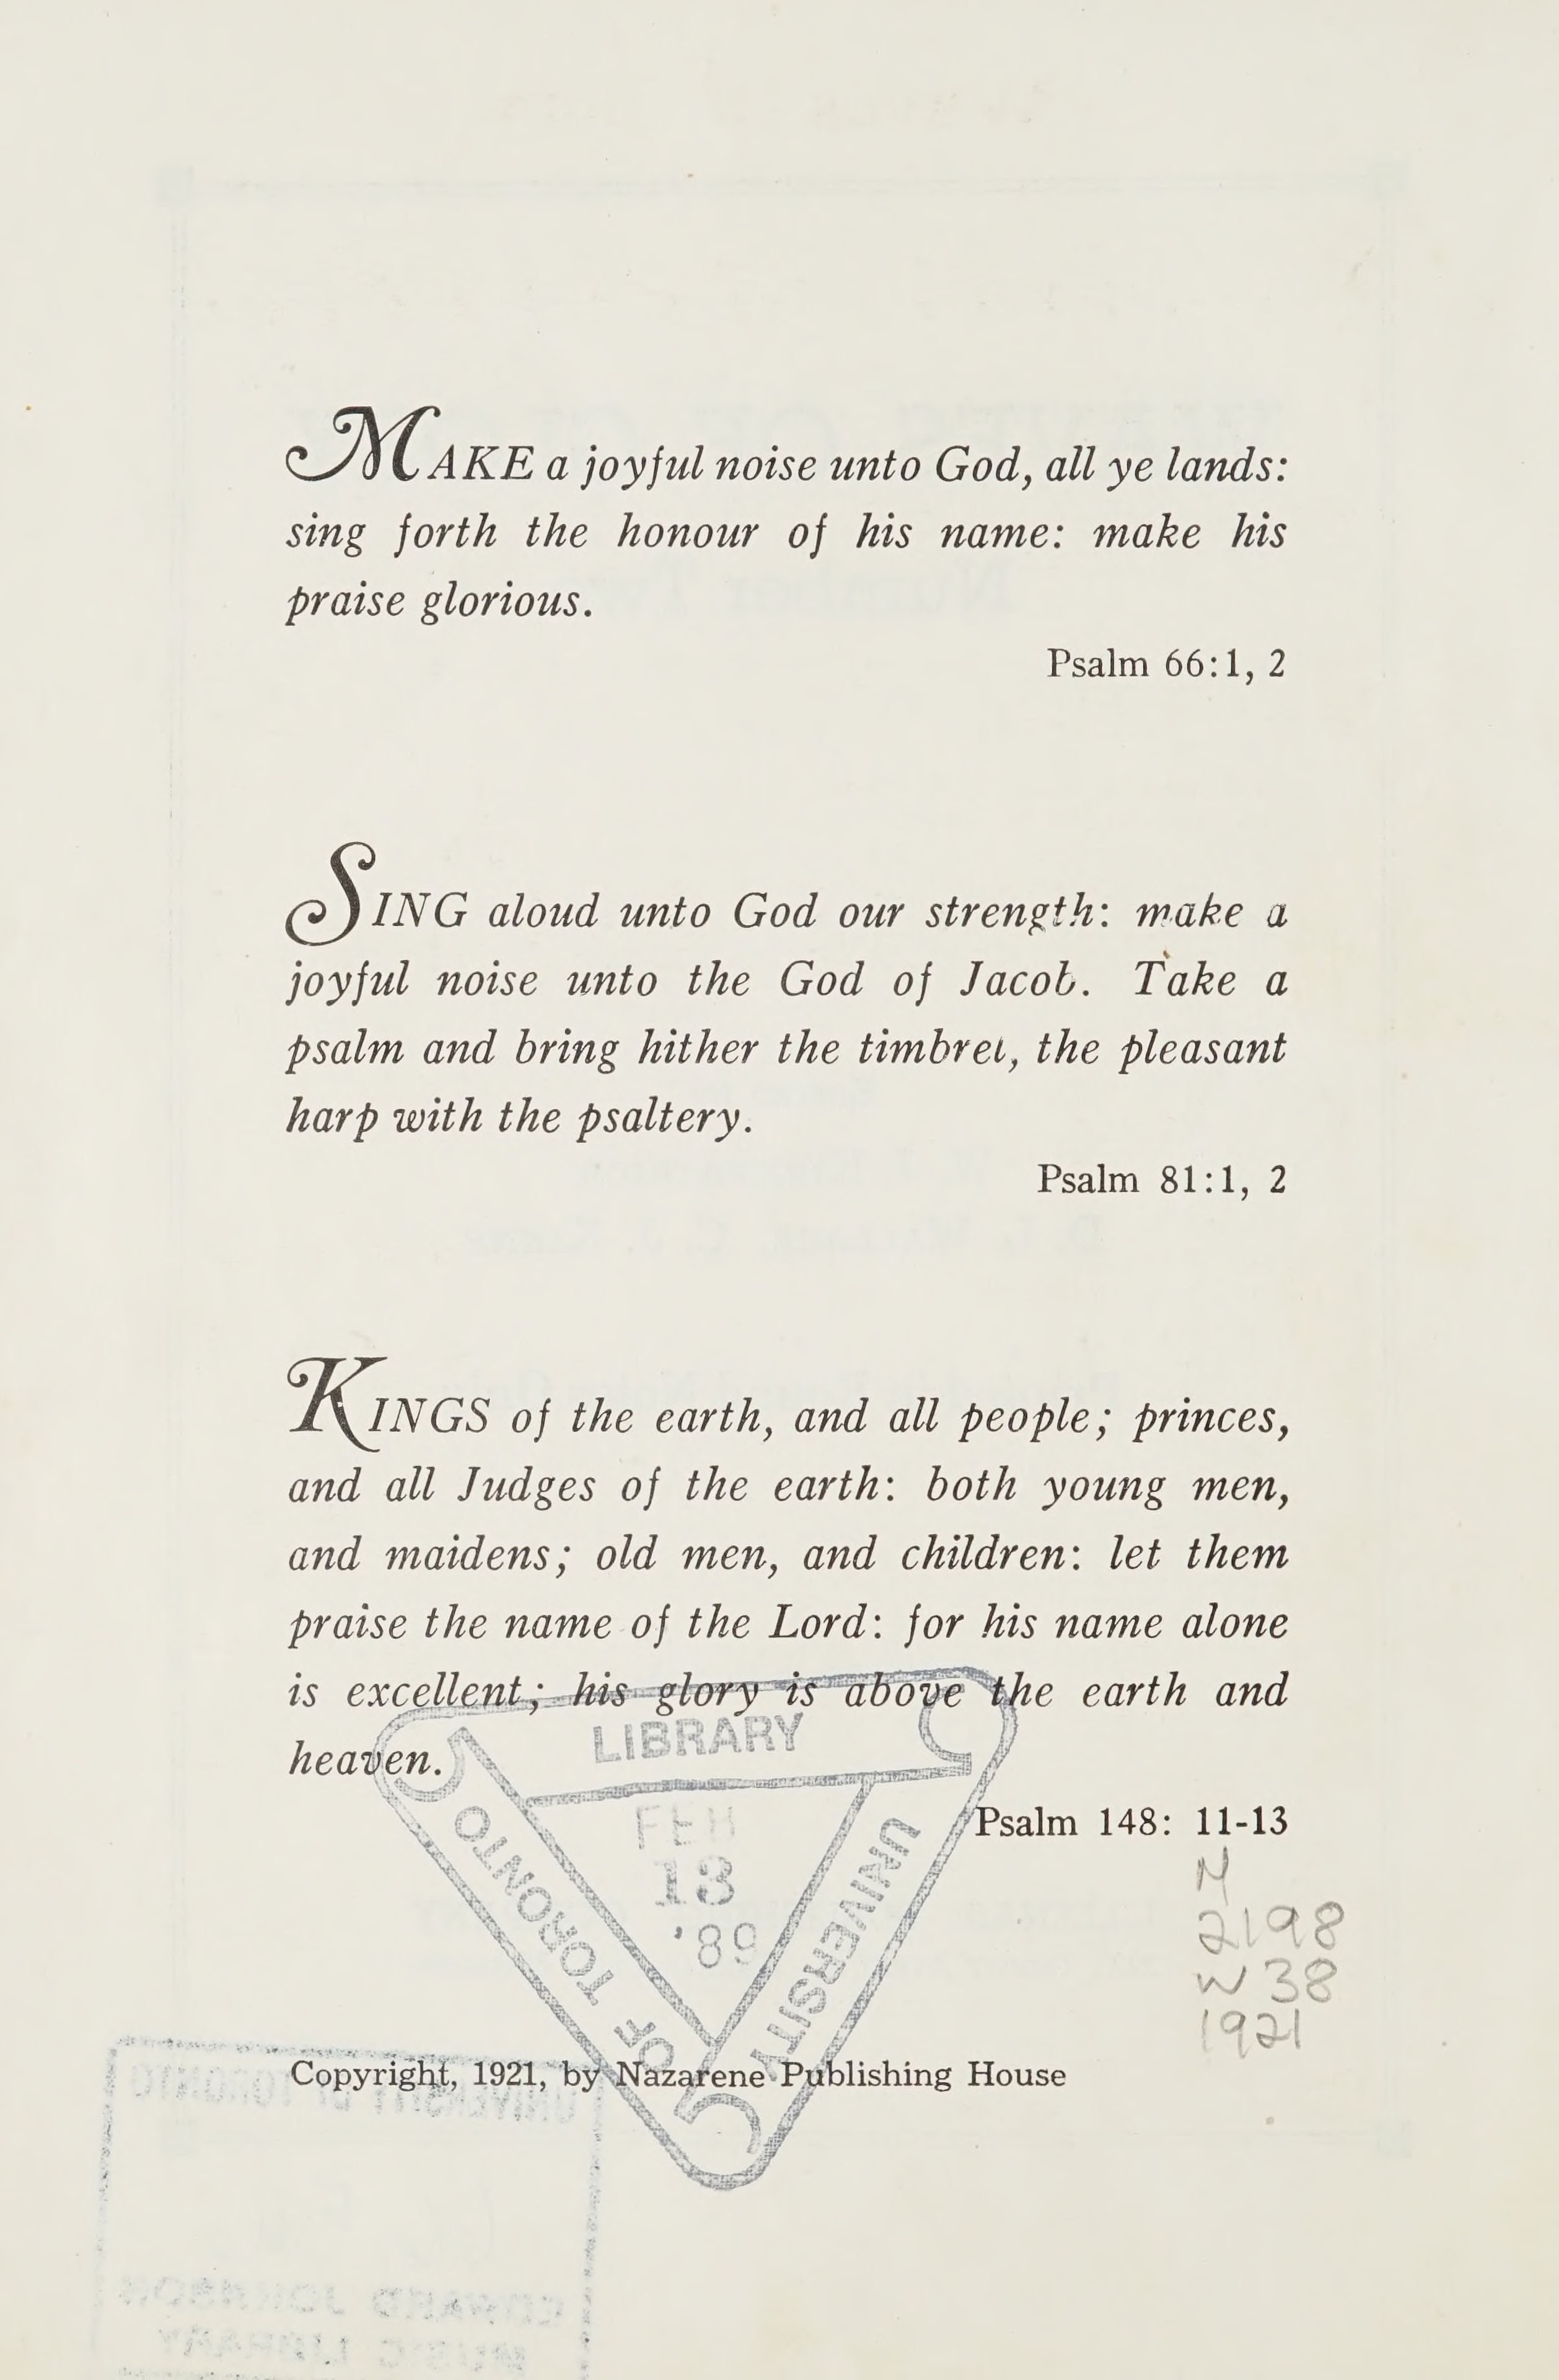 MAKE a joyful noise unto God, all ye lands:
sing forth the honour of his name: make his
praise glorious.
Psalm 66:1, 2
SING aloud unto God our strength: make a
joyful noise unto the God of Jacob. Take a
psalm and bring hither the timbret, the pleasant
harp with the psaltery.
Psalm 81:1, 2
KINGS of the earth, and all people; princes,
and all Judges of the earth: both young men,
and maidens; old men, and children: let them
praise the name of the Lord: for his name alone
is excellent; his glory is above the earth and
heaven.
Psalm 148: 11-13
LIBRARY
FEB
13
'89
UNIVERSITY
OF TORONTO
M
2198
W38
1921
Copyright, 1921, by Nazarene Publishing House
UNIVERSITY OF TORONTO
EDWARD JOHNSON
MUSIC LIBRARY